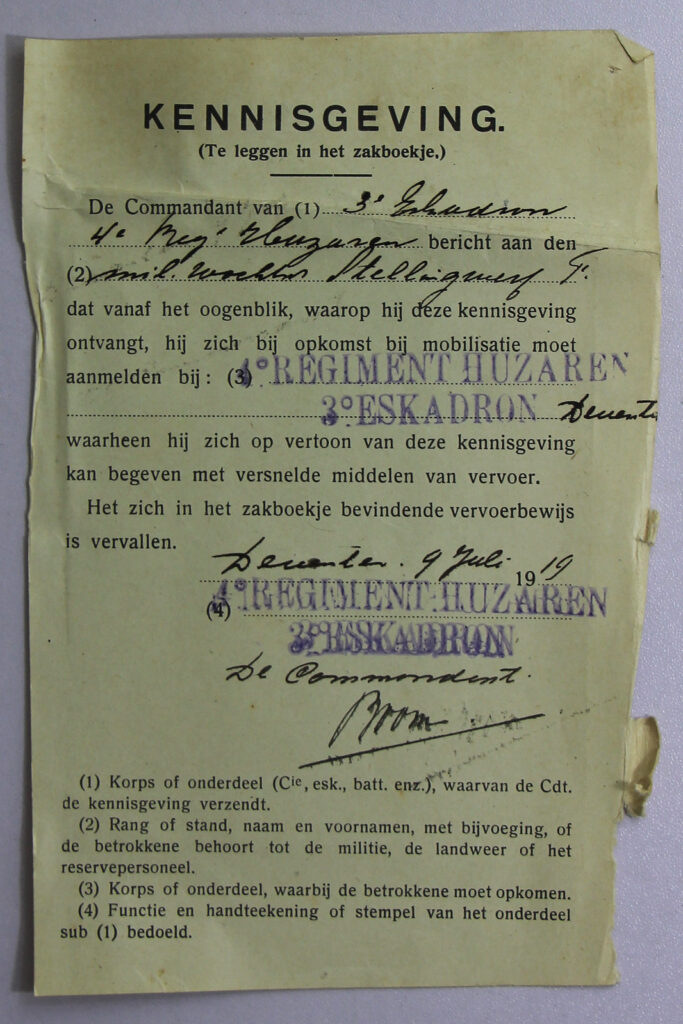 KENNISGEVING.
(Te leggen in het zakboekje.)
De Commandant van (1) 3e Eskadron
4e Regt Huzaren bericht aan den
(2) mil. Stellingwerf T.
dat vanaf het oogenblik, waarop hij deze kennisgeving
ontvangt, hij zich bij opkomst bij mobilisatie moet
aanmelden bij: (3) 4e REGIMENT HUZAREN
3e ESKADRON Deventer
waarheen hij zich op vertoon van deze kennisgeving
kan begeven met versnelde middelen van vervoer.
Het zich in het zakboekje bevindende vervoerbewijs
is vervallen.
Deventer. 9 Juli 1919
(4) 4e REGIMENT HUZAREN
3e ESKADRON
De Commandant.
Boom
(1) Korps of onderdeel (Cie, esk., batt. enz.), waarvan de Cdt.
de kennisgeving verzendt.
(2) Rang of stand, naam en voornamen, met bijvoeging, of
de betrokkene behoort tot de militie, de landweer of het
reservepersoneel.
(3) Korps of onderdeel, waarbij de betrokkene moet opkomen.
(4) Functie en handteekening of stempel van het onderdeel
sub (1) bedoeld.